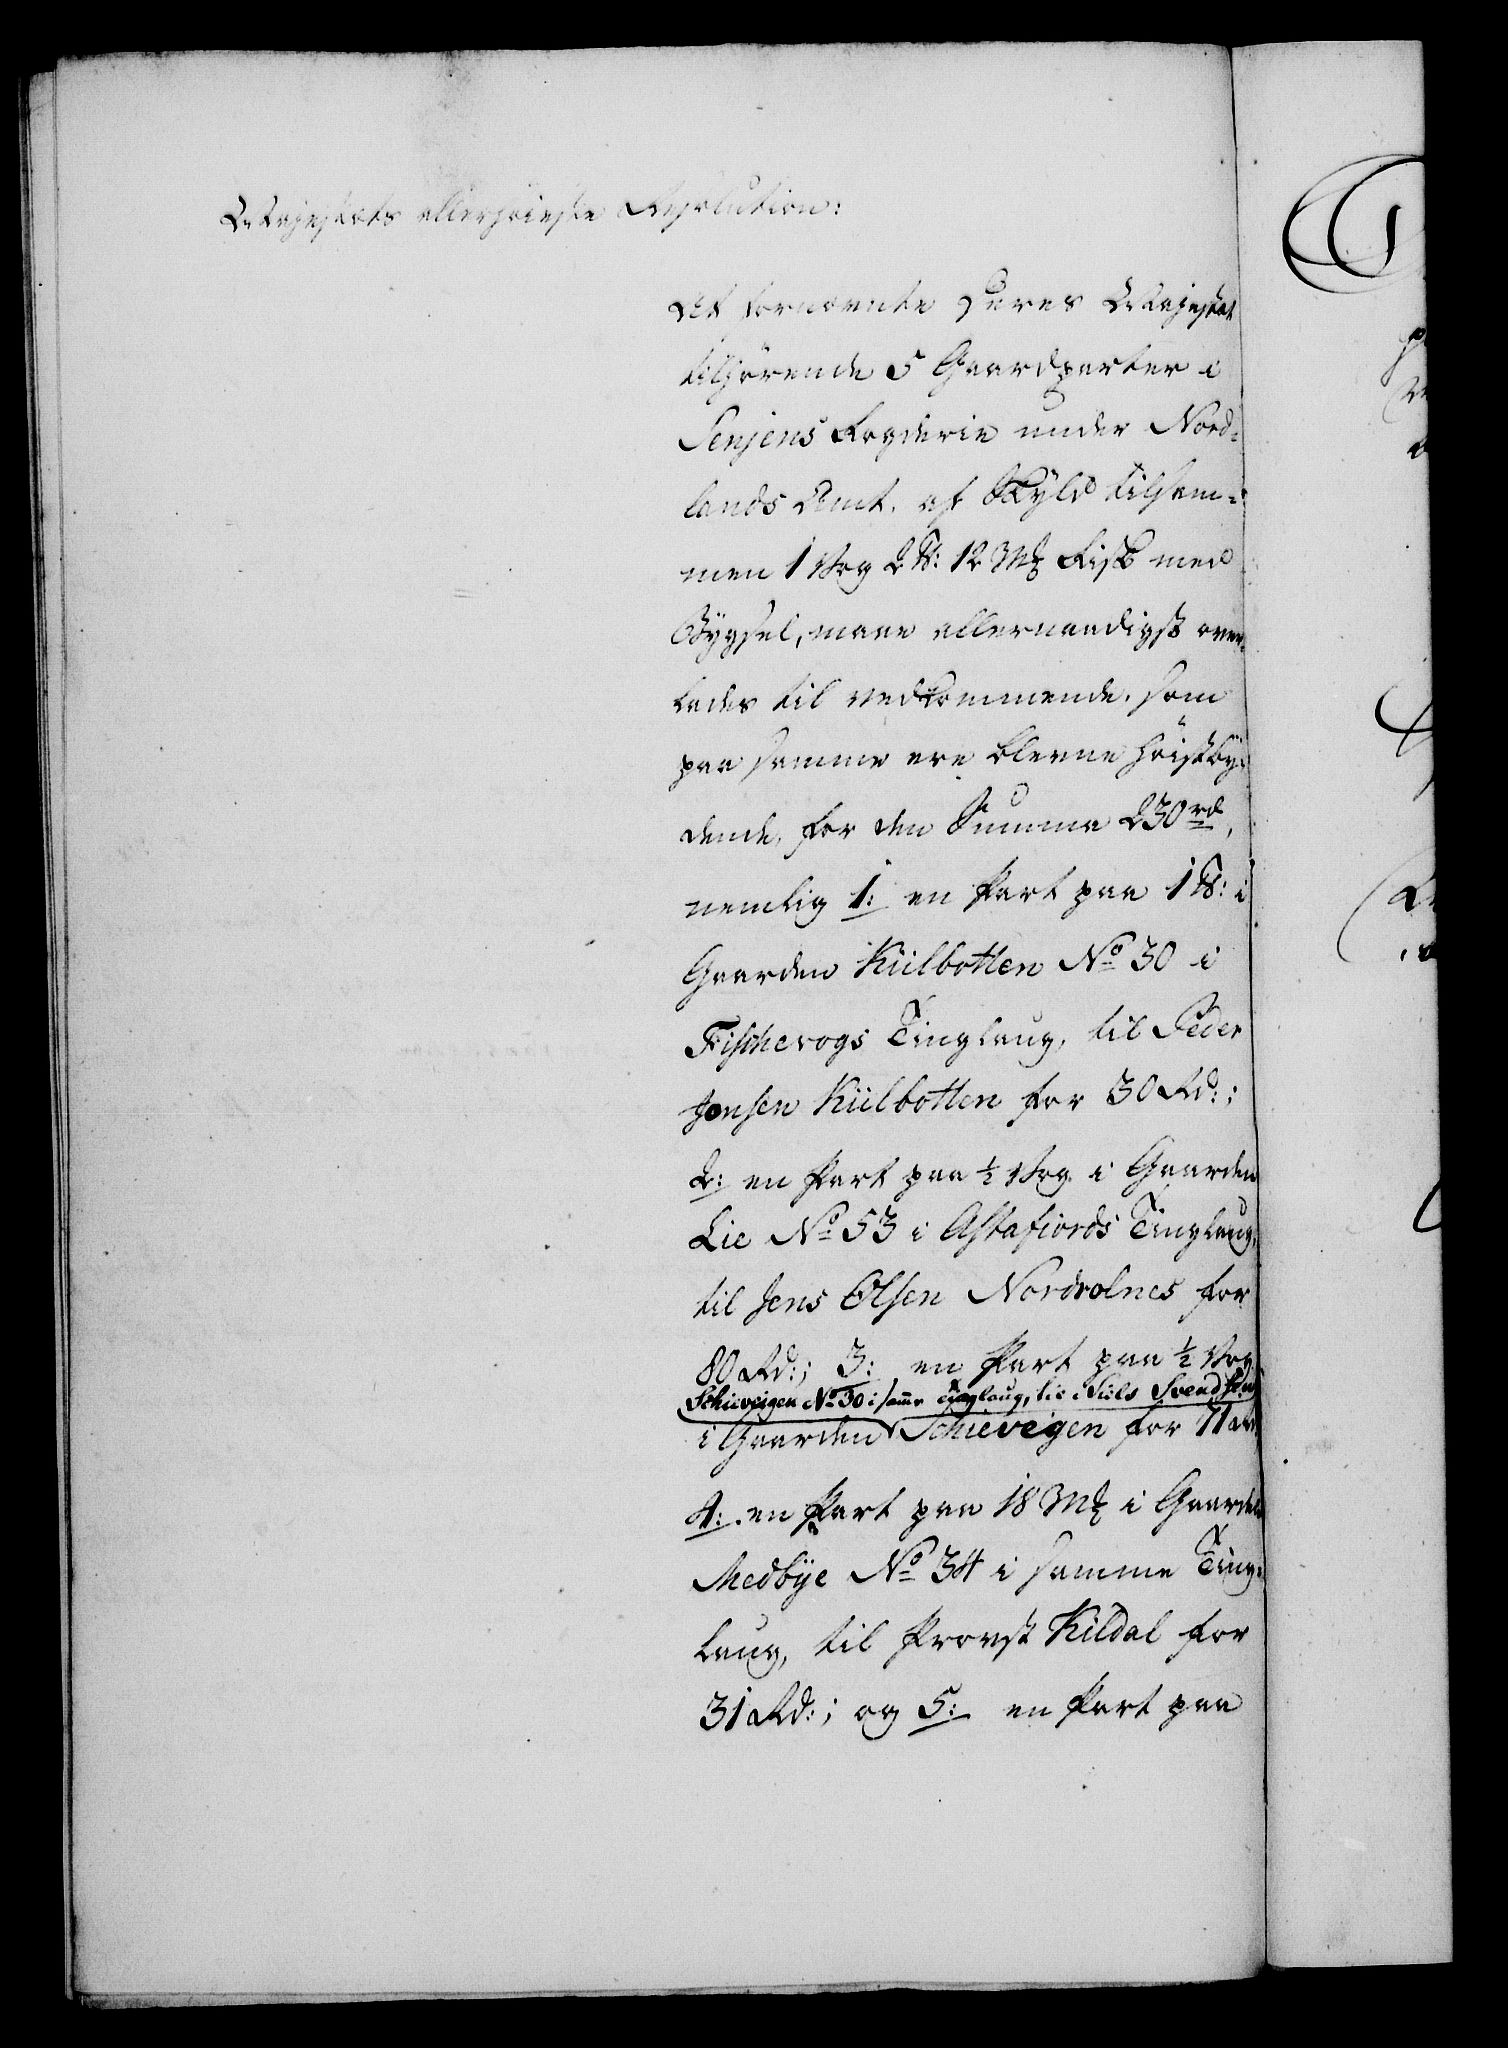 Majestæts allerhøieste Resolution:
At fornævnte Deres Majestæt
tilhörende 5 Gaardparter i
Senjens Fogderie under Nord-
lands Amt, af Skyld tilsam-
men 1 Vog 2 ℔: 12 Mk Fisk med
Bÿgsel, maae allernaadigst over-
lades til vedkommende, som
paa samme ere blevne høistbÿ-
dende, for den Summa 230 rd,
nemlig 1: en Part paa 1 ℔: i
Gaarden Kiilbotten No 30 i
Fischevogs Tinglaug, til Peder
Jonsen Kiilbotten for 30 Rd:;
2: en Part paa ½ Vog i Gaarden
Lie No 53 i Astafiords Tinglaug,
til Jens Olsen Nordrolnes for
80 Rd:; 3: en Part paa ½ Vog
Schieveigen No 30 i samme Tinglaug, til Niels Svendsen
i Gaarden Schievegen for 71 Rd
4: en Part paa 18 Mk i Gaarden
Medbÿe No 34 i samme Ting-
laug, til Provst Kildal for
31 Rd:; og 5: en Part paa